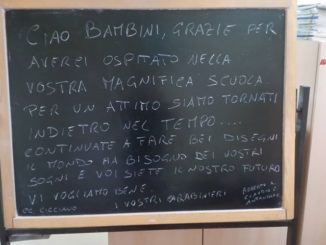 CIAO BAMBINI, GRAZIE PER
AVERCI OSPITATO NELLA
VOSTRA MAGNIFICA SCUOLA
PER UN ATTIMO SIAMO TORNATI
INDIETRO NEL TEMPO.....
CONTINUATE A FARE BEI DISEGNI
IL MONDO HA BISOGNO DEI VOSTRI
SOGNI E VOI SIETE IL NOSTRO FUTURO
VI VOGLIAMO BENE
I VOSTRI CARABINIERI